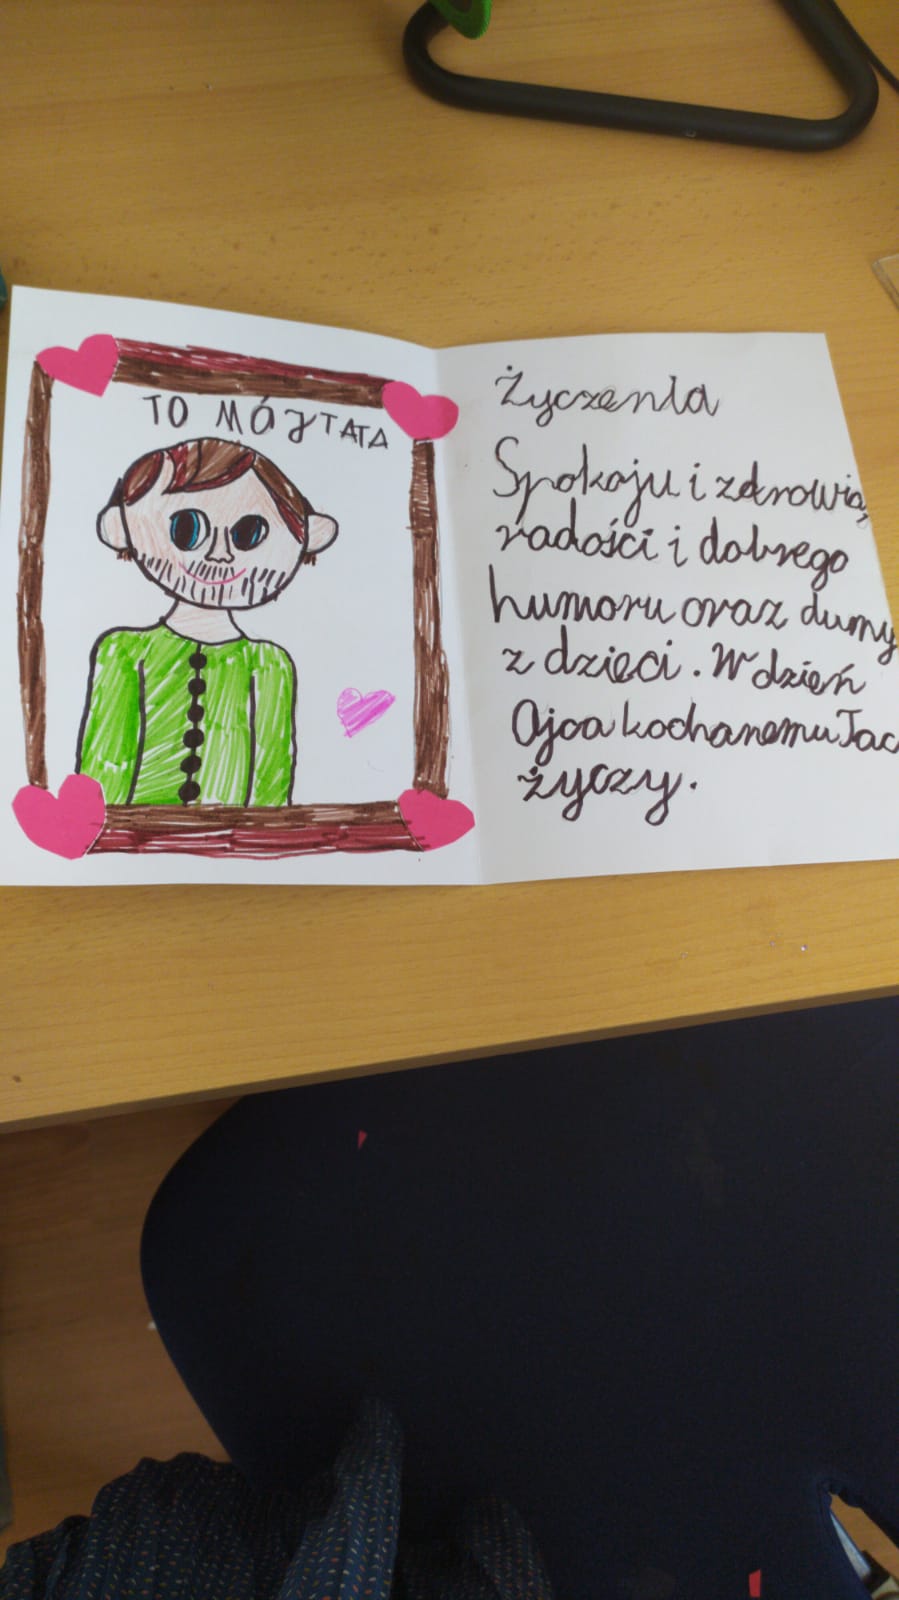 TO MÓJ TATA
Życzenia
Spokoju i zdrowia,
radości i dobrego
humoru oraz dumy
z dzieci. W dzień
Ojca kochanemu
życzy.